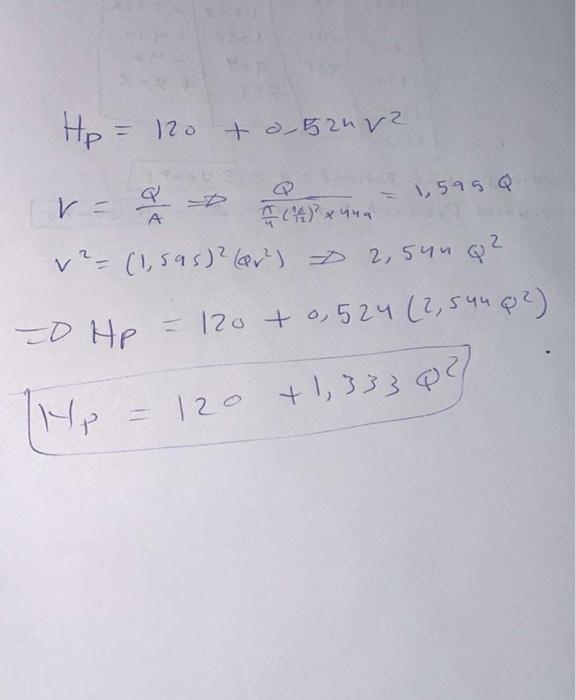 Hp = 120 + 0,524 V²
V = Q/A ⇒ Q / (π/4 (16/12)² × 449) = 1,595 Q
V² = (1,595)² (Qv²) ⇒ 2,544 Q²
⇒ Hp = 120 + 0,524 (2,544 Q²)
Hp = 120 + 1,333 Q²